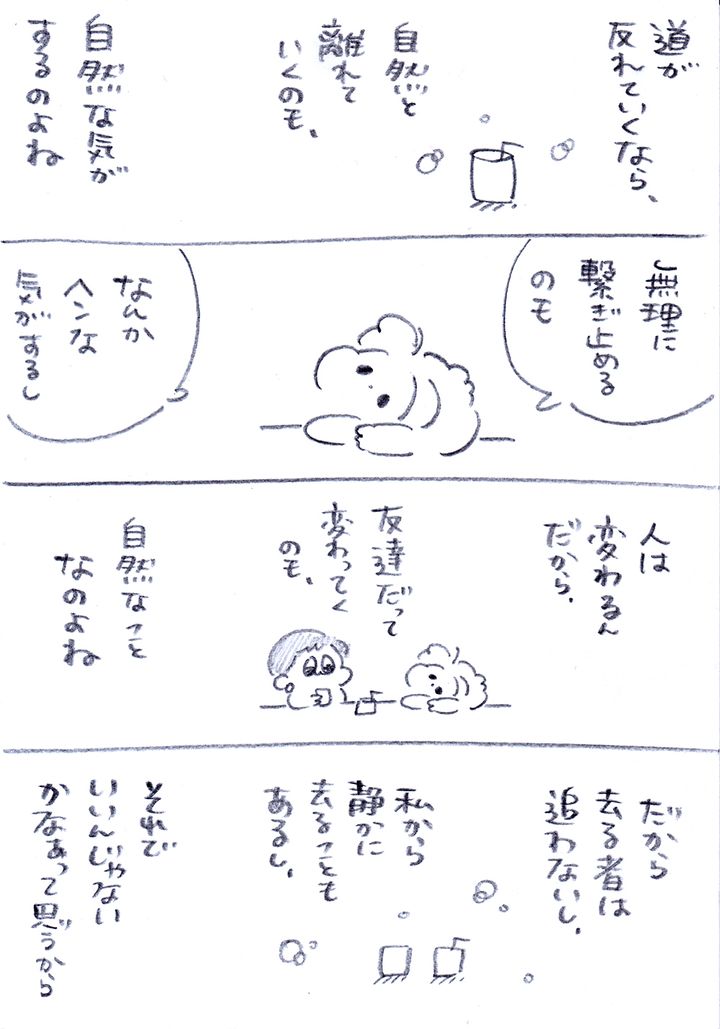 道が
反れていくなら、
自然と
離れて
いくのも、
自然な気が
するのよね
無理に
繋ぎ止める
のも
なんか
ヘンな
気がするし
人は
変わるん
だから、
友達だって
変わってく
のも、
自然なこと
なのよね
だから
去る者は
追わないし、
私から
静かに
去ることも
あるし、
それで
いいんじゃない
かなあって思うから